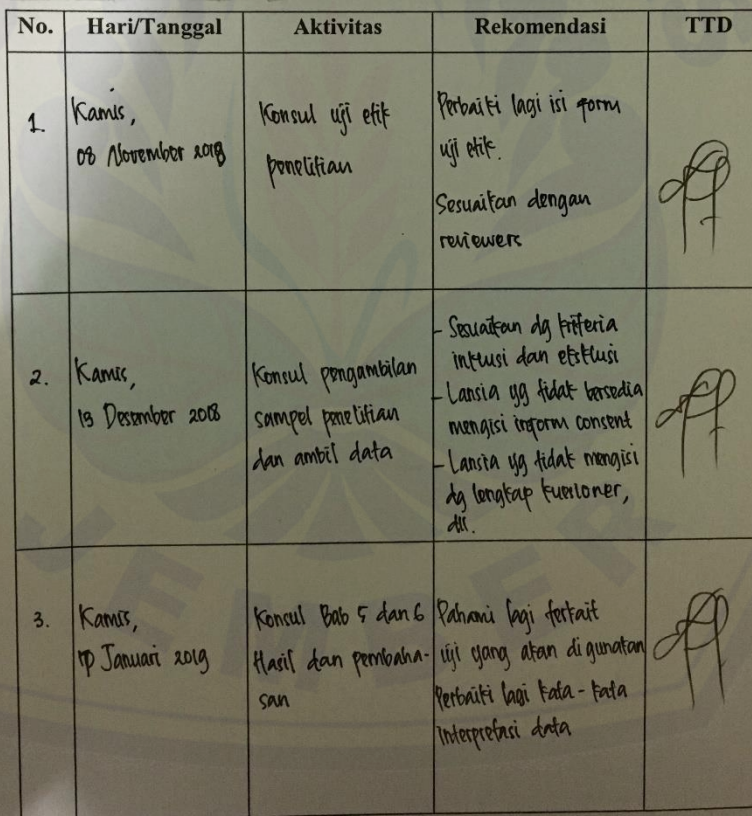 No. Hari/Tanggal Aktivitas Rekomendasi TTD
1. Kamis,
08 November 2018
Konsul uji etik
penelitian
Perbaiki lagi isi form
uji etik.
Sesuaikan dengan
reviewers
2. Kamis,
13 Desember 2018
Konsul pengambilan
sampel penelitian
dan ambil data
- Sesuaikan dg kriteria
inklusi dan eksklusi
- Lansia yg tidak bersedia
mengisi inform consent
- Lansia yg tidak mengisi
dg lengkap kuesioner,
dll.
3. Kamis,
Januari 2019
Konsul Bab 5 dan 6
Hasil dan pembaha-
san
Pahami lagi terkait
uji yang akan digunakan
Perbaiki lagi kata-kata
interpretasi data
JEMBER